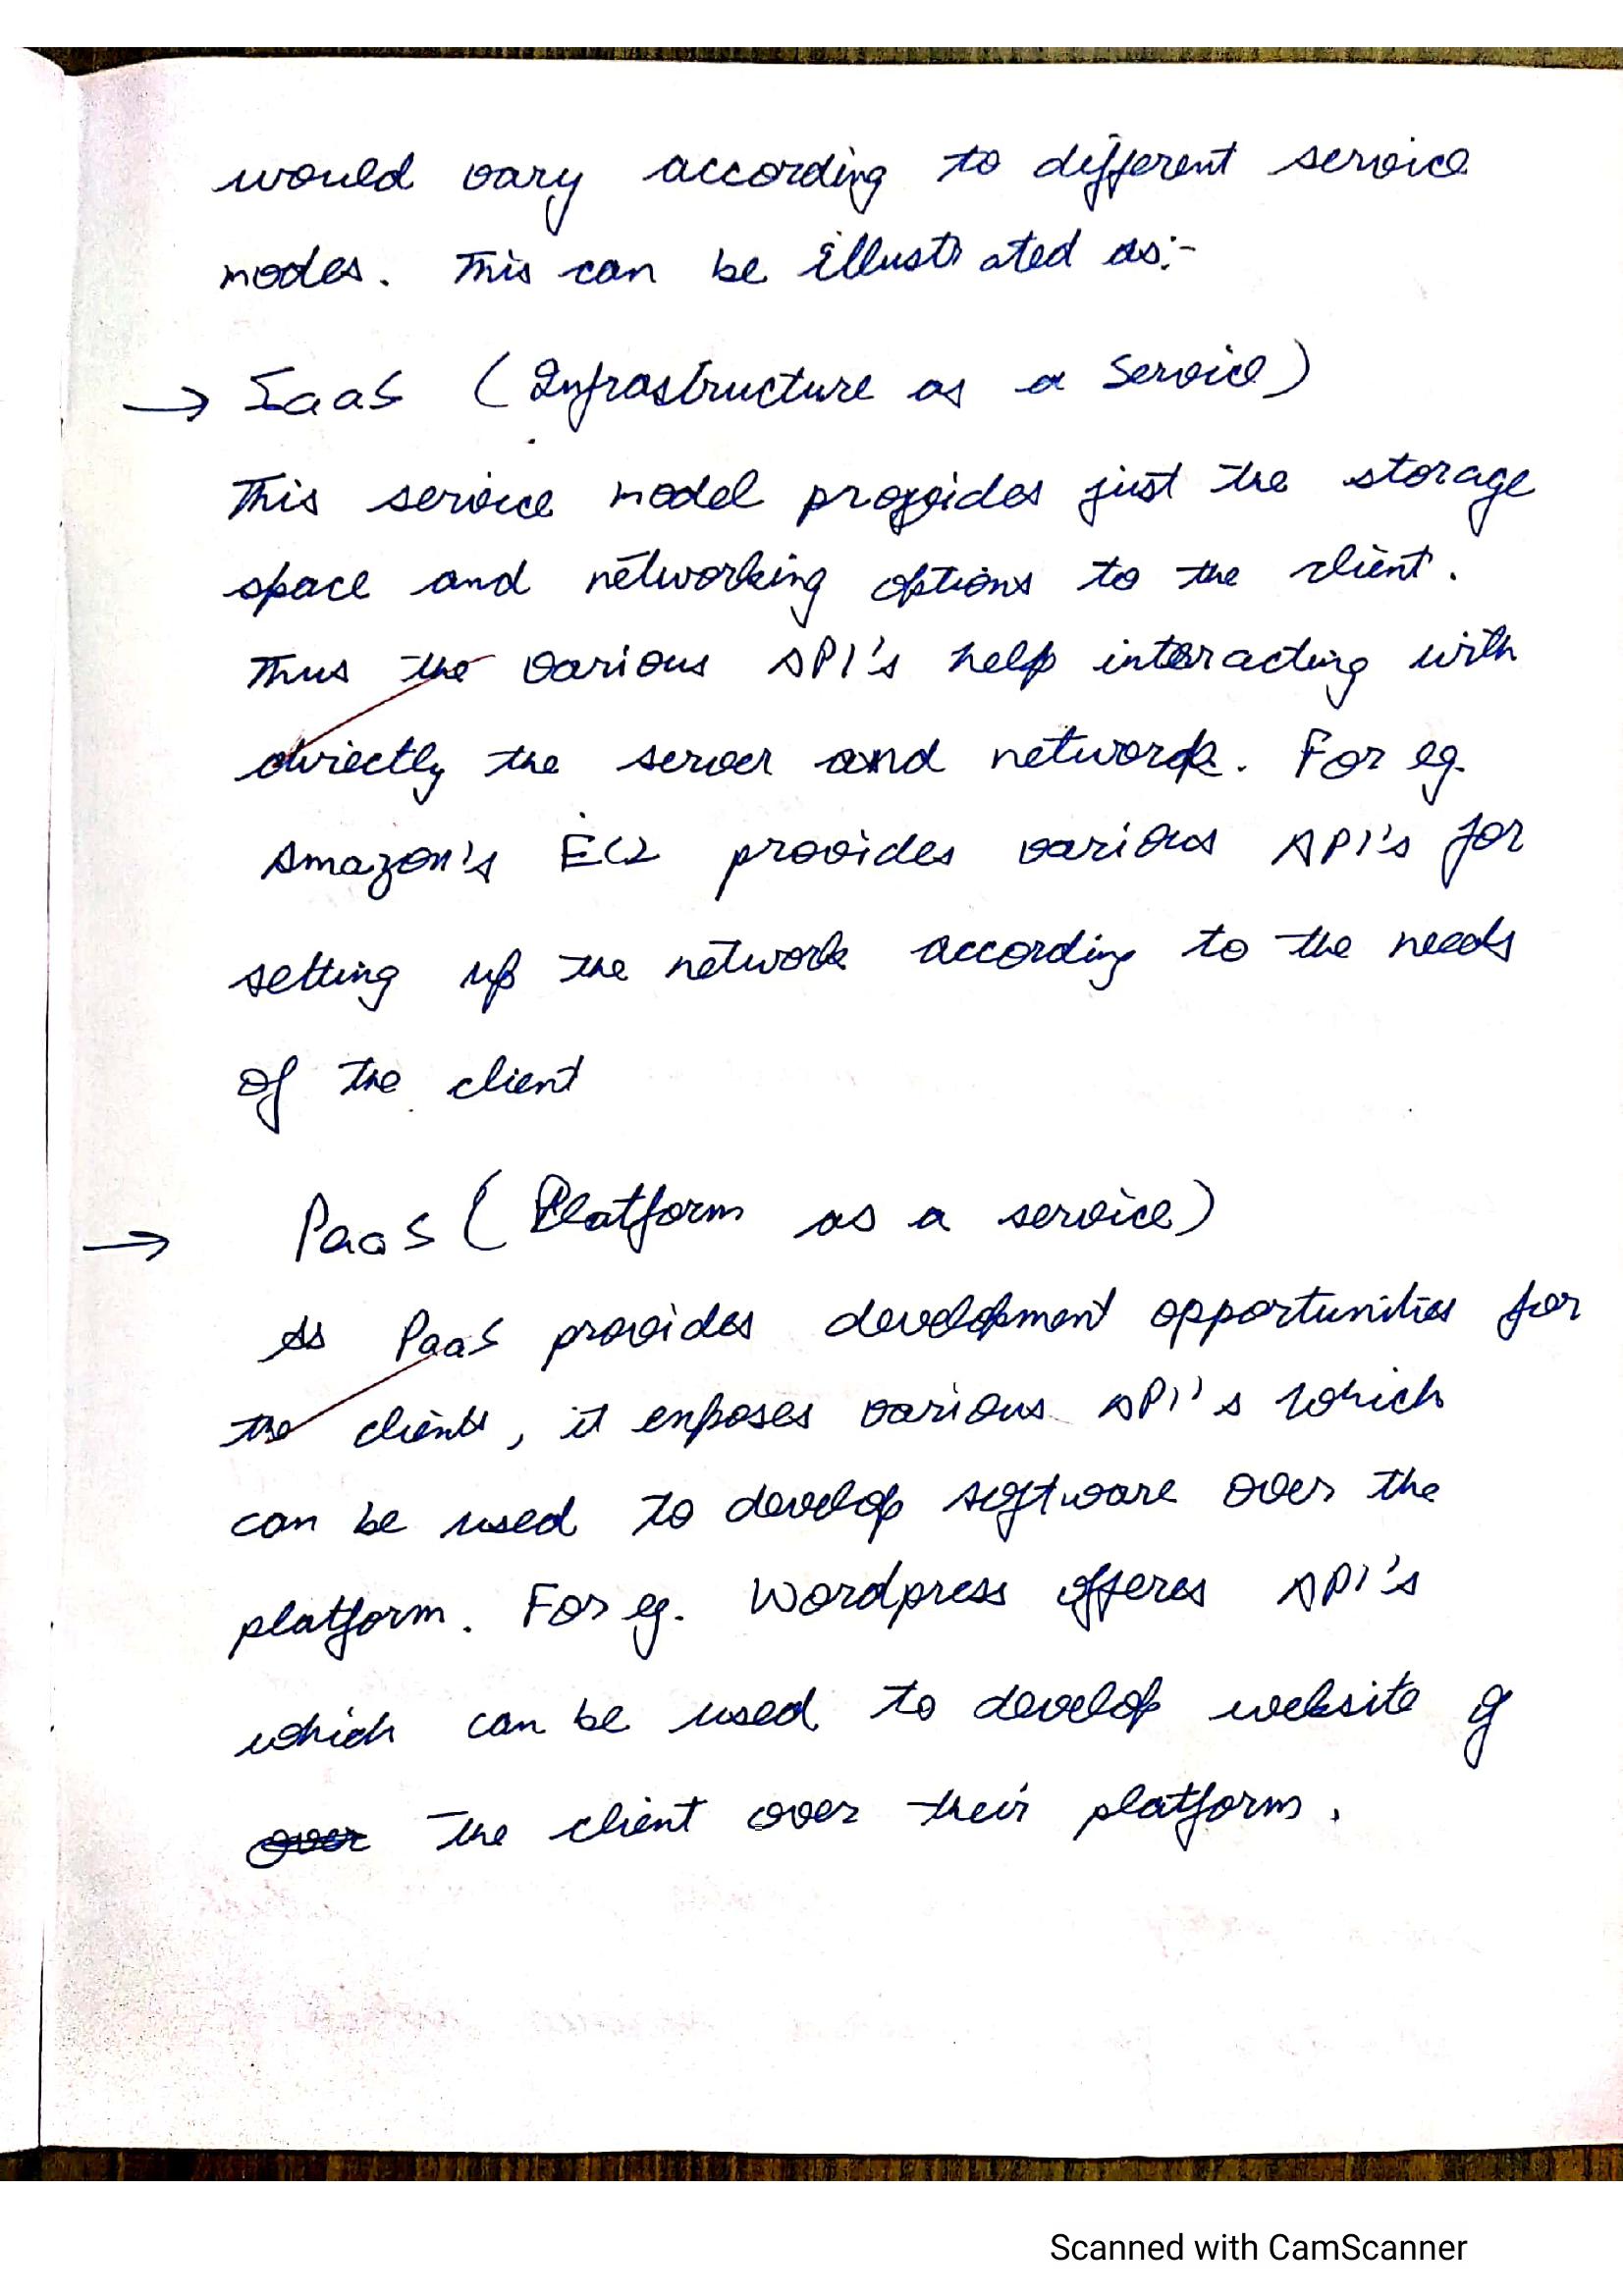 would vary according to different service
modes. This can be illustrated as:-
→ IaaS (Infrastructure as a Service)
This service model provides just the storage
space and networking options to the client.
Thus the various API's help interacting with
directly the server and network. For eg.
Amazon's EC2 provides various API's for
setting up the network according to the needs
of the client
→ PaaS (Platform as a service)
As PaaS provides development opportunities for
the clients, it exposes various API's which
can be used to develop software over the
platform. For eg. Wordpress offeres API's
which can be used to develop website of
over the client over their platform.
Scanned with CamScanner